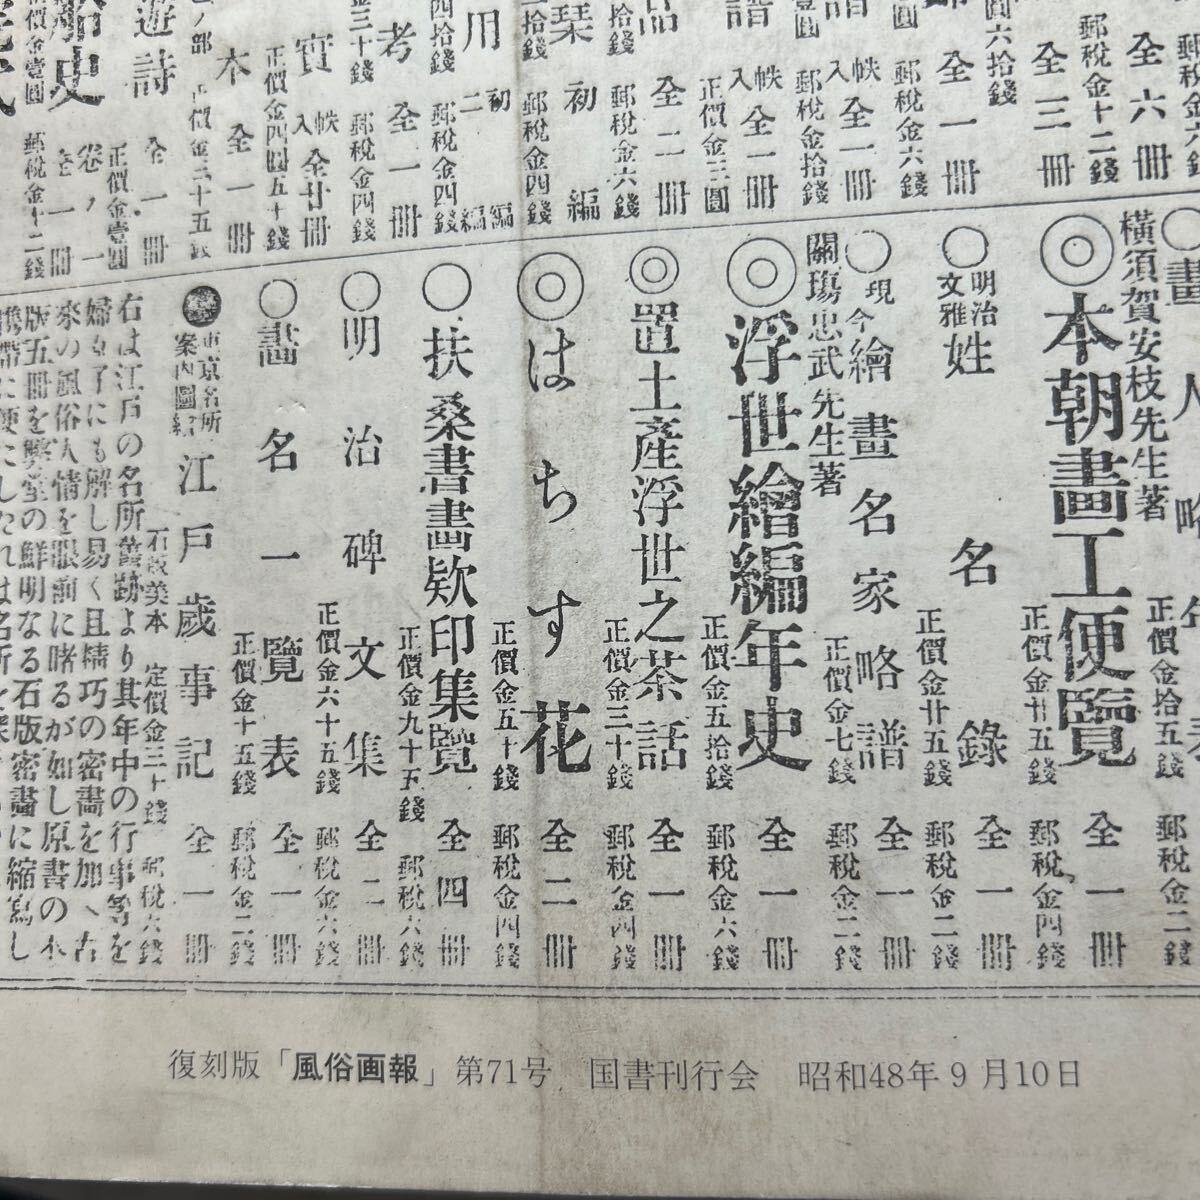 全六冊
郵税金十二錢
全三冊
圓六拾錢
全一冊
郵税金六錢
帙入全一冊
郵税金拾錢
帙入全一冊
正價金三圓
全二冊
郵税金六錢
拾錢
栞初編
郵税金四錢
拾錢
用初編二編
郵税金四錢
四拾錢
考全一冊
郵税金四錢
三十錢
實帙入全廿冊
正價金四圓五十錢
本全一冊
遊詩全一冊
正價金壹圓
卷ノ一
郵税金十二錢
正價金拾五錢
郵税金二錢
横須賀安枝先生著
◎本朝畫工便覽全一冊
正價金廿五錢
郵税金四錢
○明治文雅姓名錄全一冊
正價金廿五錢
郵税金二錢
○現今繪畫名家略譜全一冊
正價金七錢
郵税金二錢
關塲忠武先生著
◎浮世繪編年史全一冊
正價金五拾錢
郵税金六錢
◎置土産浮世之茶話全一冊
正價金三十錢
郵税金四錢
◎はちす花全二冊
正價金五十錢
郵税金四錢
○扶桑書畫欵印集覽全四冊
正價金九十五錢
郵税金六錢
○明治碑文集全二冊
正價金六十五錢
郵税金六錢
○畵名一覽表全一冊
正價金十五錢
郵税金二錢
東京名所案内圖繪江戸歳事記全一冊
石版美本 定價金三十錢 郵税六錢
右は江戸の名所舊跡より其年中の行事等を
婦女子にも解し易く且精巧の密畵を加へ古
來の風俗人情を眼前に睹るが如し原書の木
版五冊を鮮明なる石版密畵に縮寫し
復刻版「風俗画報」第71号 国書刊行会 昭和48年9月10日